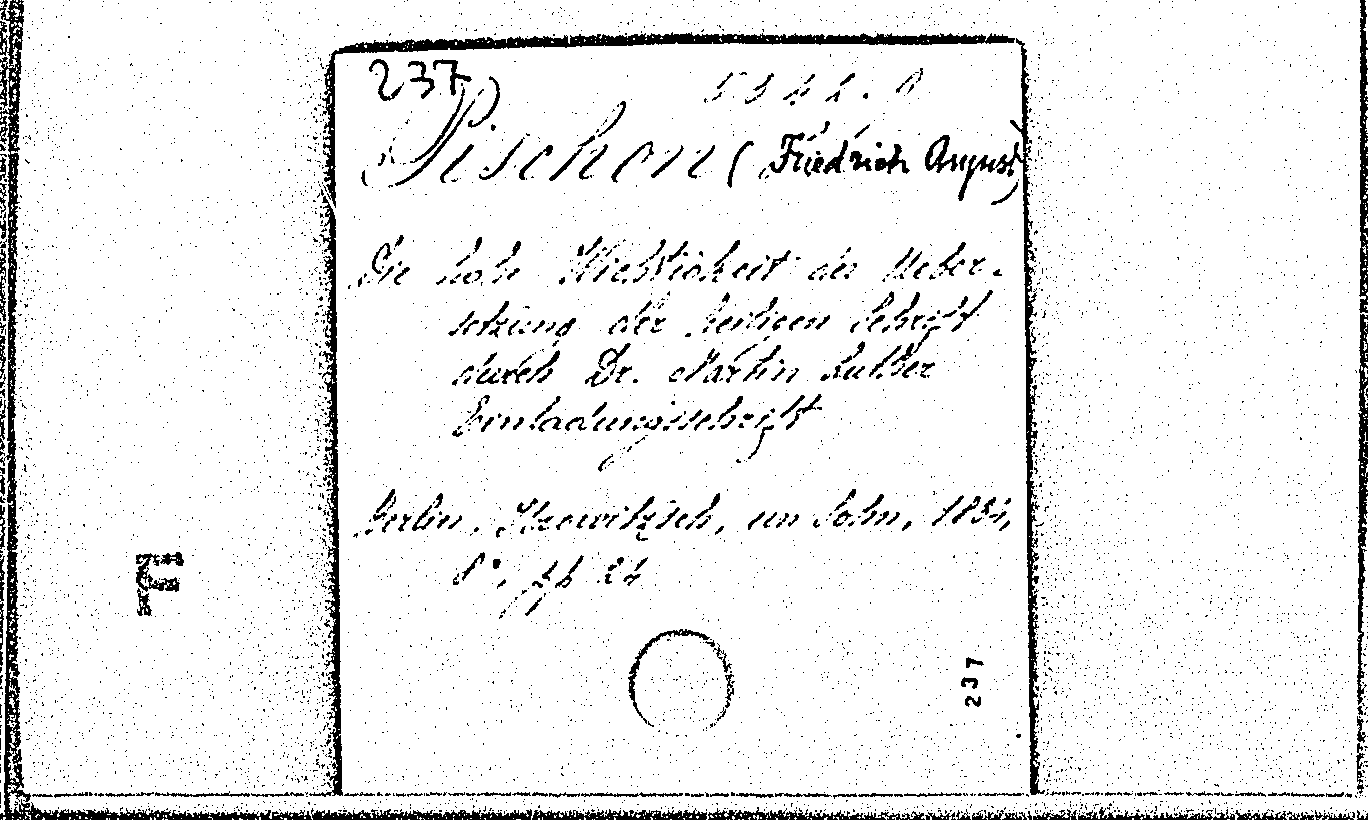 237
Pischon (Friedrich August)
Die hohe Wichtigkeit der Ueber-
setzung der heiligen Schrift
durch Dr. Martin Luther
Einladungsschrift
Berlin, Trowitzsch, un Sohn, 1834,
8°, pp 24
237
F